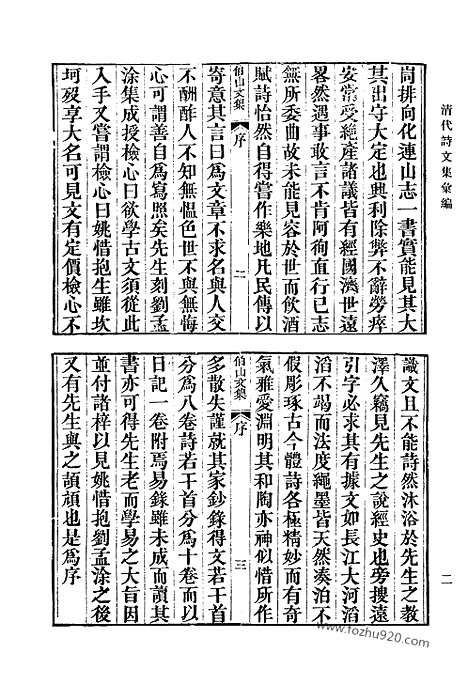 清代詩文集彙編
二
峝排向化連山志一書實能見其大
其出守大定也興利除弊不辭勞瘁
安常受絶產諸議皆有經國濟世遠
畧然遇事敢言不肯阿徇直行已志
無所委曲故未能見容於世而飲酒
賦詩怡然自得嘗作樂地凡民傳以
伯山文集 序 二
寄意其言曰爲文章不求名與人交
不酬酢人不知無慍色世不與無悔
心可謂善自爲寫照矣先生刻劉孟
涂集成授檢心曰欲學古文須從此
入手又嘗謂檢心曰姚惜抱生雖坎
坷歿享大名可見文有定價檢心不
識文且不能詩然沐浴於先生之教
澤久竊見先生之說經史也旁搜遠
引字必求其有據文如長江大河滔
滔不竭而法度繩墨皆天然湊泊不
假彫琢古今體詩各極精妙而有奇
氣雅愛淵明其和陶亦神似惜所作
伯山文集 序 三
多散失謹就其家鈔錄得文若干首
分爲八卷詩若干首分爲十卷而以
日記一卷附焉易錄雖未成而讀其
書亦可得先生老而學易之大旨因
並付諸梓以見姚惜抱劉孟涂之後
又有先生與之頡頏也是爲序
www.fozhu920.com